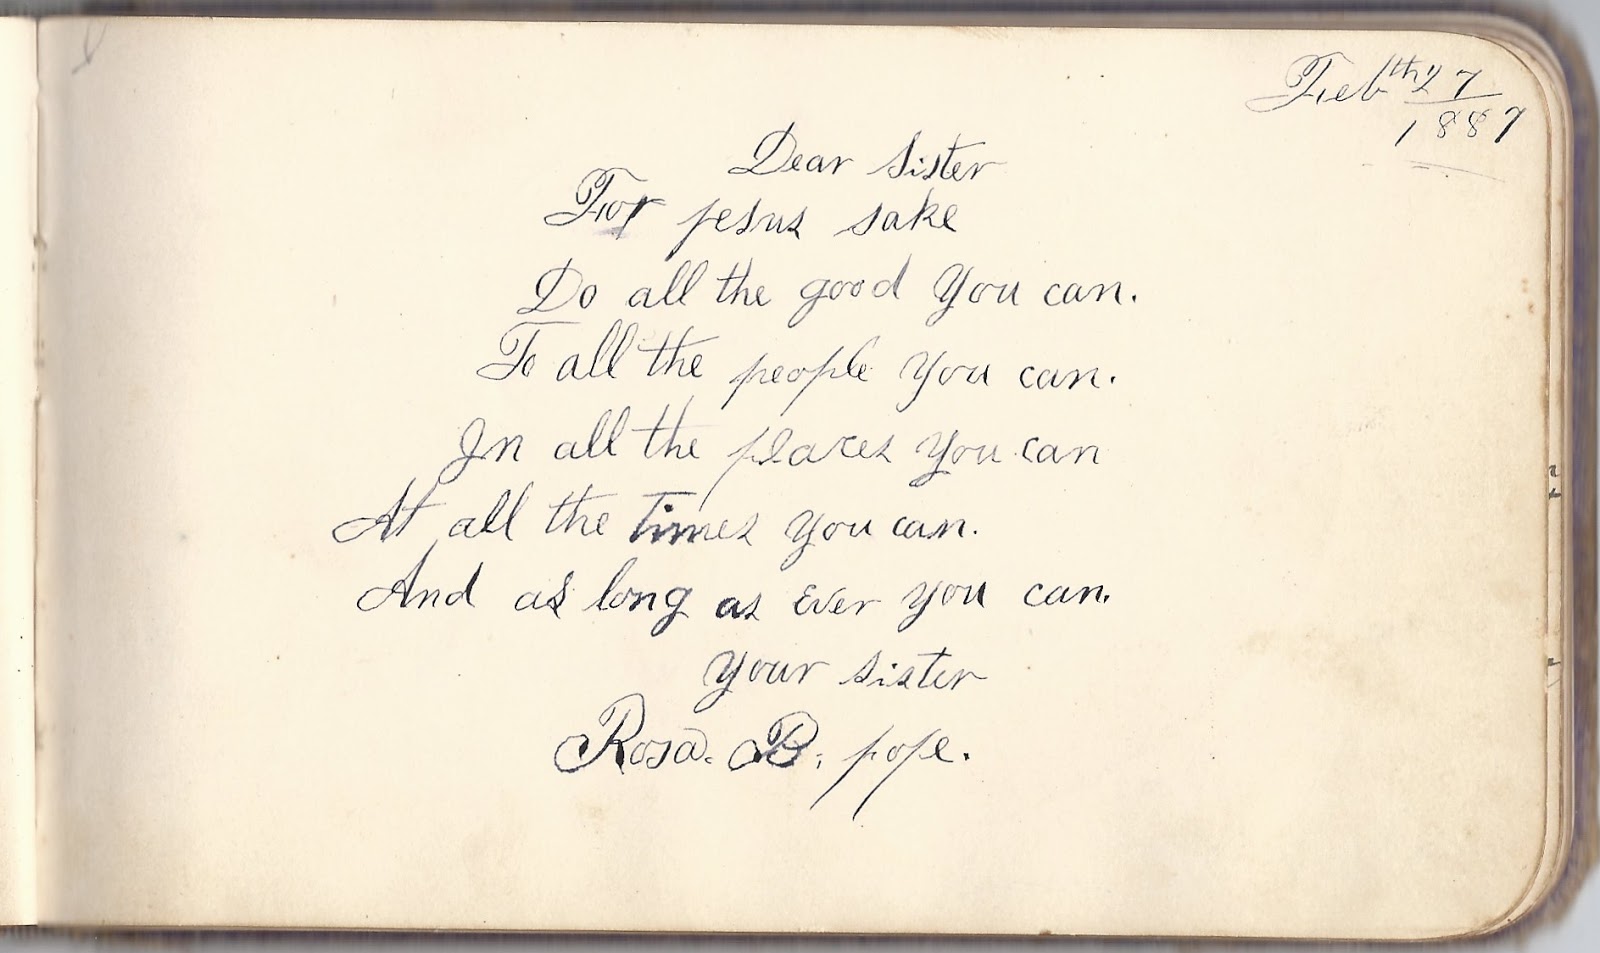 Feb th 27
1887
Dear sister
For jesus sake
Do all the good you can.
To all the people you can.
In all the places you can
At all the times you can.
And as long as Ever you can.
your sister
Rosa. B. pope.